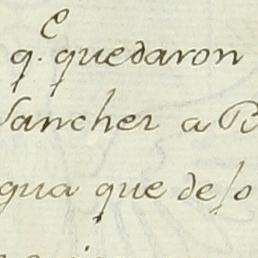 q.e quedaron
Sanchez a
gua que de so